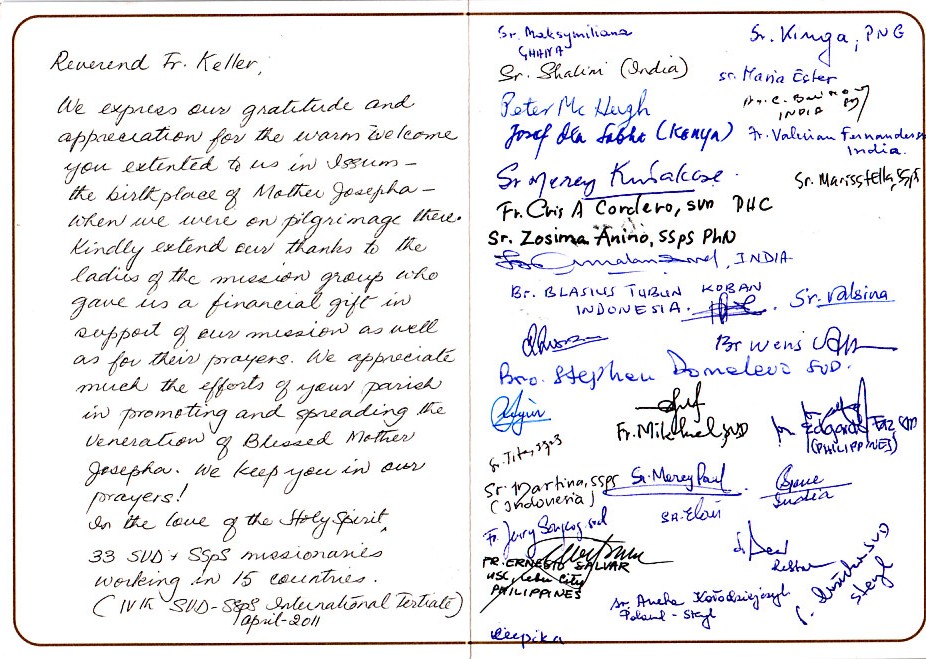 Reverend Fr. Keller,
We express our gratitude and
appreciation for the warm welcome
you extented to us in Issum –
the birthplace of Mother Josepha –
when we were on pilgrimage there.
Kindly extend our thanks to the
ladies of the mission group who
gave us a financial gift in
support of our mission as well
as for their prayers. We appreciate
much the efforts of your parish
in promoting and spreading the
veneration of Blessed Mother
Josepha. We keep you in our
prayers!
In the love of the Holy Spirit,
33 SVD + SSpS missionaries
working in 15 countries.
(IVth SVD-SSpS International Tertiate)
April-2011
Sr. Maksymiliana
GHANA
Sr. Kinga, PNG
Sr. Shalini (India)
Sr. Maria Ester
Peter Mc Hugh
INDIA
Josef dla (Kenya)
Fr. Valerian Fernandes
India.
Sr Mercy
Sr. Marisstella, SSpS
Fr. Cris A Cordero, SVD PHC
Sr. Zosima Anino, SSpS PhN
INDIA
Br. BLASIUS TUBUN KOBAN
INDONESIA.
Sr. Valsina
Br Wens
Bro. Stephen SVD.
Fr. SVD
Edgardo SVD
(PHILIPPINES)
Sr. Tita, SSpS
Sr. Martina, SSpS
(Indonesia)
Sr. Mercy Paul
India
Fr. Jerry SVD
FR. ERNESTO SALVAR
USC, Cebu City
PHILIPPINES
Sr. Aneta Kołodziejczyk
Poland - Steyl
SVD
Steyl
Deepika